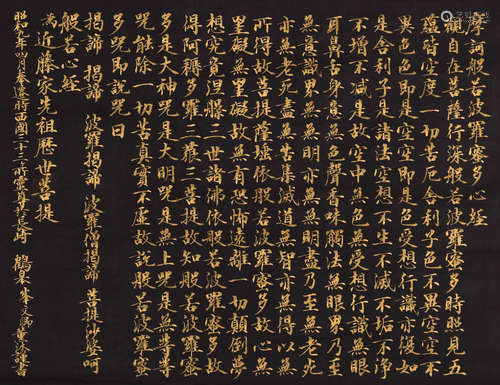 摩訶般若波羅蜜多心經
觀自在菩薩行深般若波羅蜜多時照見五
蘊皆空度一切苦厄舍利子色不異空空不
異色色即是空空即是色受想行識亦復如
是舍利子是諸法空想不生不滅不垢不淨
不增不減是故空中無色無受想行識無眼
耳鼻舌身意無色聲香味觸法無眼界乃至
無意識界無無明亦無無明盡乃至無老死
亦無老死盡無苦集滅道無智亦無得以無
所得故菩提薩埵依般若波羅蜜多故心無
罣礙無罣礙故無有恐怖遠離一切顛倒夢
想究竟涅槃三世諸佛依般若波羅蜜多故
得阿耨多羅三藐三菩提故知般若波羅蜜
多是大神咒是大明咒是無上咒是無等等
咒能除一切苦真實不虛故說般若波羅蜜
多咒即說咒曰
揭諦 揭諦 波羅揭諦 波羅僧揭諦 菩提沙婆呵
般若心經
為 近藤家先祖歷世菩提
昭和九年四月奉 時西國三十三所 謹書